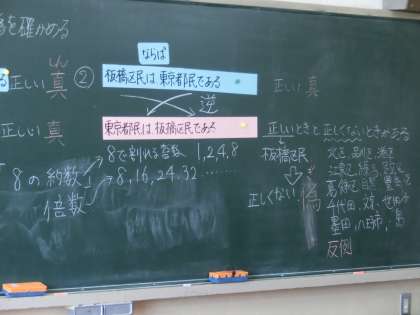 を確かめる
しん
正しい 真
ならば
② 板橋区民は 東京都民である
正しい 真
逆
正しい 真
東京都民は 板橋区民である
正しいときと 正しくないときがある
8で割れる整数 1,2,4,8
「8の約数」
倍数
8,16,24,32 ……
板橋区民
正しくない 偽
北区,
江東区,
葛飾区
千代田, 文京, 世田谷
墨田, 八王子市, 島
反例